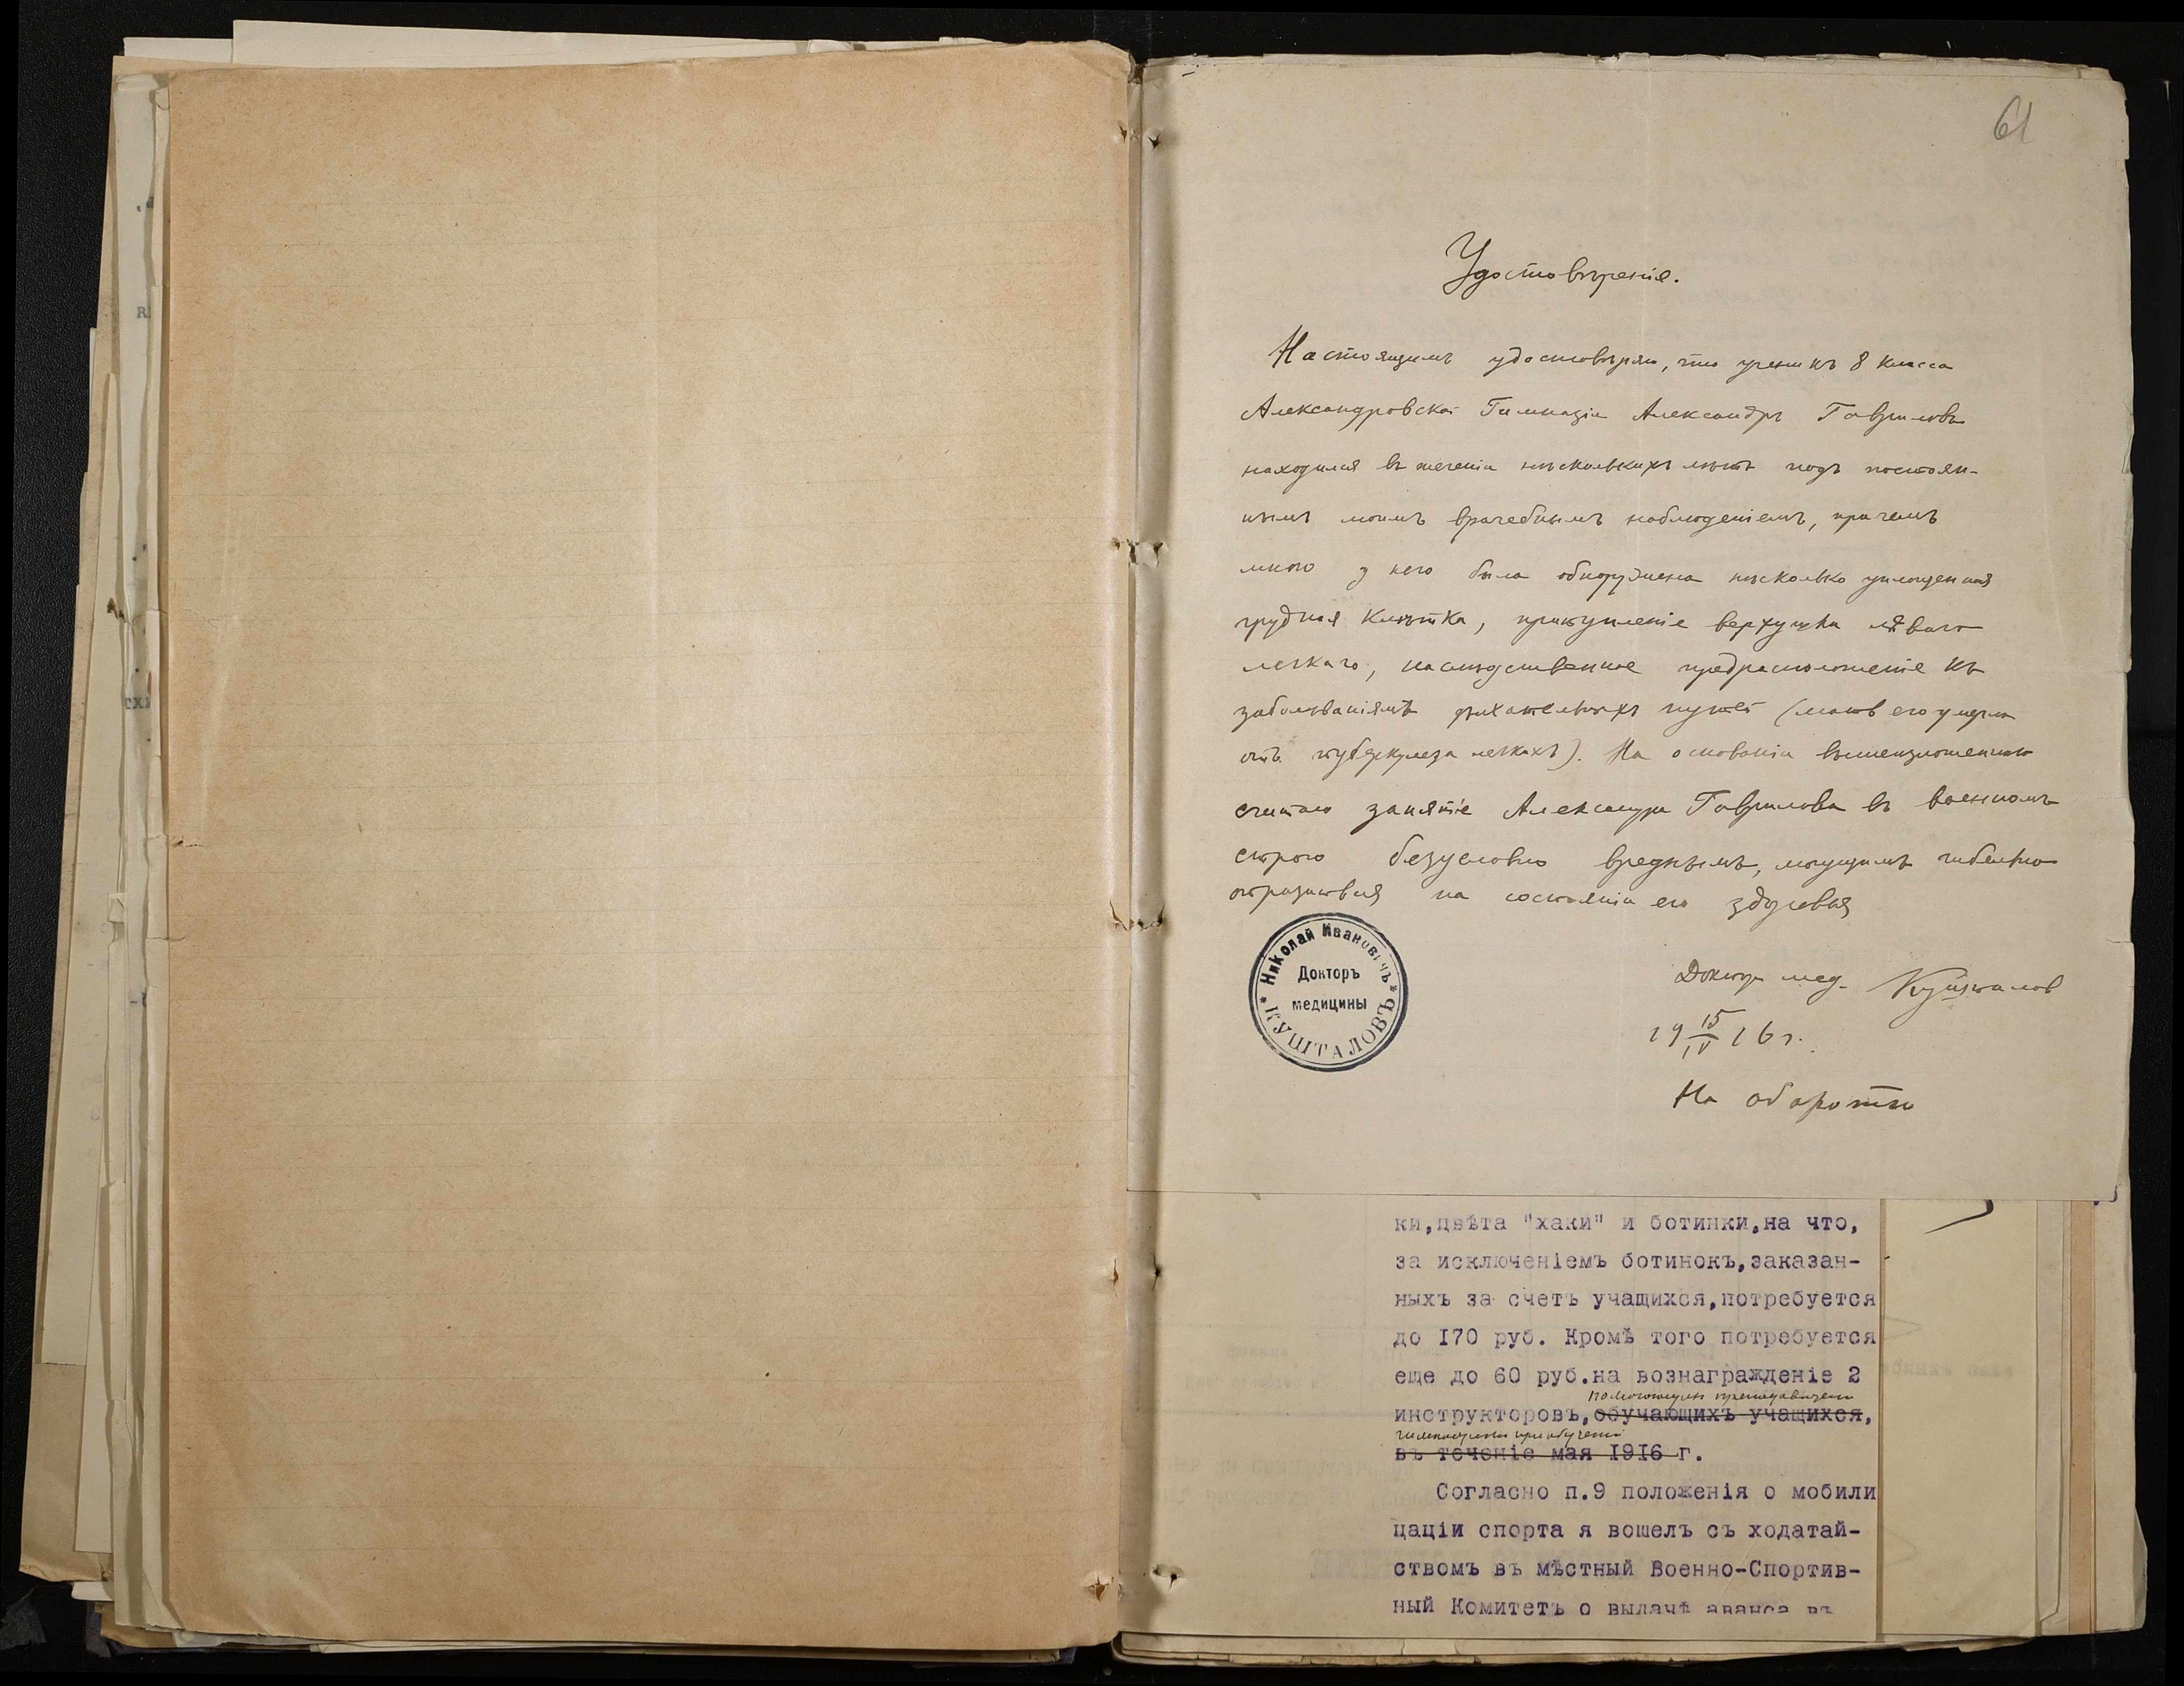 61
Удостовѣреніе.
Настоящимъ удостовѣряю, что ученикъ 8 класса
Александровской Гимназіи Александръ Гавриловъ
находился въ теченіи нѣсколькихъ лѣтъ подъ постоян-
нымъ моимъ врачебнымъ наблюденіемъ, причемъ
мною у него была обнаружена нѣсколько уплощенная
грудная клѣтка, притупленіе верхушки лѣваго
легкаго, наслѣдственное предрасположеніе къ
заболѣваніямъ дыхательныхъ путей (мать его умерла
отъ туберкулеза легкихъ). На основаніи вышеизложеннаго
считаю занятіе Александра Гаврилова въ военномъ
строю безусловно вреднымъ, могущимъ гибельно
отразиться на состояніи его здоровья
Николай Ивановичъ
Докторъ
медицины
* КУШТАЛОВЪ *
Докторъ мед. Кушталов
19 15/IV 16 г.
На оборотѣ
ки,цвѣта "хаки" и ботинки,на что,
за исключеніемъ ботинокъ,заказан-
ныхъ за счетъ учащихся,потребуется
до 170 руб. Кромѣ того потребуется
еще до 60 руб.на вознагражденіе 2
помогающихъ преподавателю
инструкторовъ,обучающихъ учащихся,
гимнастики при обученіи
въ теченіе мая 1916 г.
Согласно п.9 положенія о мобили
цаціи спорта я вошелъ съ ходатай-
ствомъ въ мѣстный Военно-Спортив-
ный Комитетъ о выдачѣ аванса въ